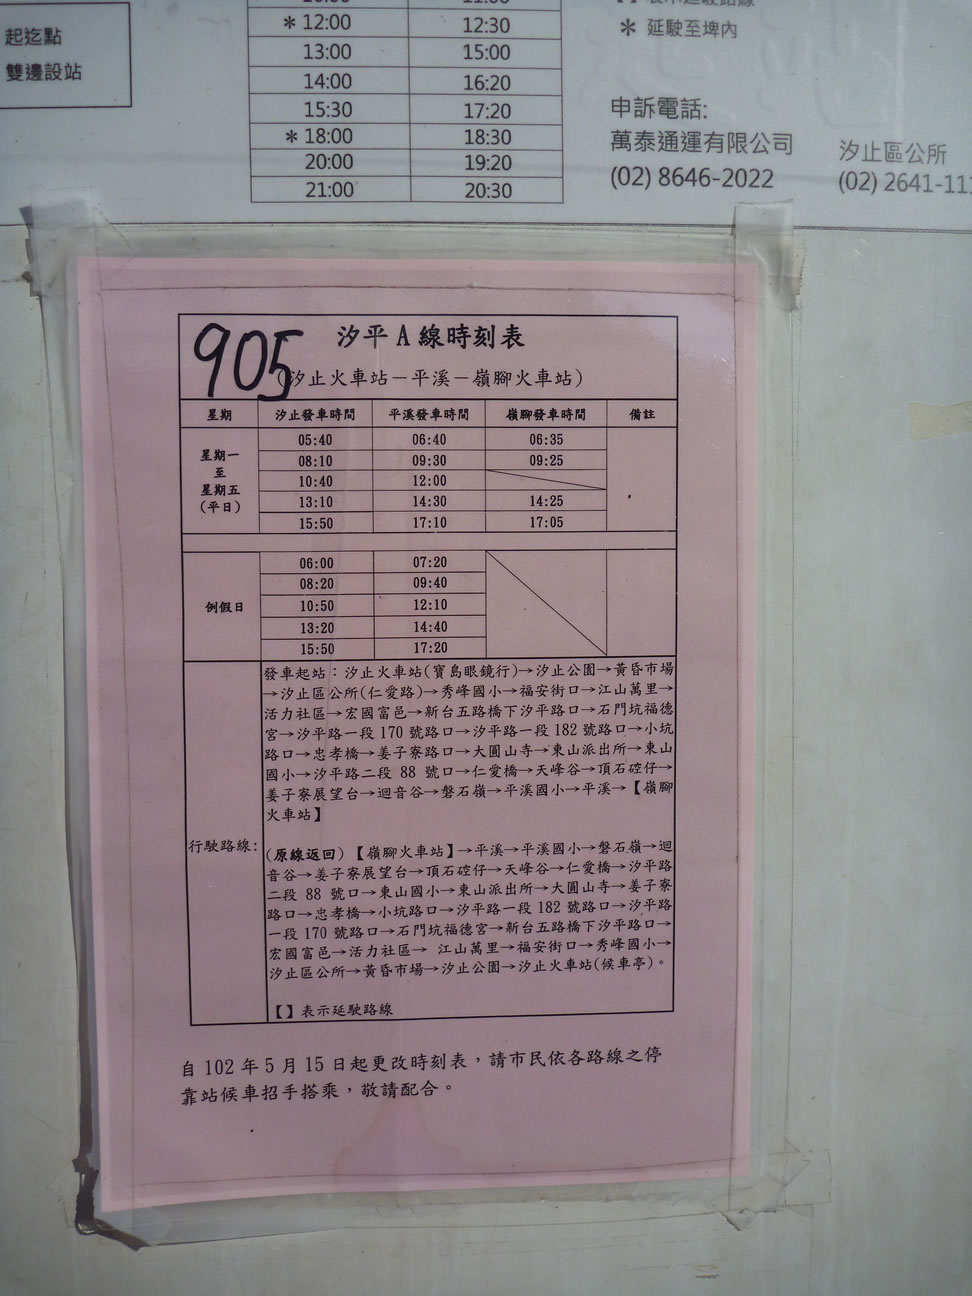 起迄點
雙邊設站
＊12:00 12:30
13:00 15:00
14:00 16:20
15:30 17:20
＊18:00 18:30
20:00 19:20
21:00 20:30
＊ 延駛至埤內
申訴電話:
萬泰通運有限公司
(02) 8646-2022
汐止區公所
(02) 2641-11
905
汐平A線時刻表
(汐止火車站－平溪－嶺腳火車站)
星期 汐止發車時間 平溪發車時間 嶺腳發車時間 備註
星期一
至
星期五
(平日)
05:40 06:40 06:35
08:10 09:30 09:25
10:40 12:00
13:10 14:30 14:25
15:50 17:10 17:05
例假日
06:00 07:20
08:20 09:40
10:50 12:10
13:20 14:40
15:50 17:20
行駛路線:
發車起站：汐止火車站(寶島眼鏡行)→汐止公園→黃昏市場
→汐止區公所(仁愛路)→秀峰國小→福安街口→江山萬里→
活力社區→宏國富邑→新台五路橋下汐平路口→石門坑福德
宮→汐平路一段170 號路口→汐平路一段182號路口→小坑
路口→忠孝橋→姜子寮路口→大圓山寺→東山派出所→東山
國小→汐平路二段 88 號口→仁愛橋→天峰谷→頂石硿仔→
姜子寮展望台→迴音谷→磐石嶺→平溪國小→平溪→【嶺腳
火車站】
(原線返回)【嶺腳火車站】→平溪→平溪國小→磐石嶺→迴
音谷→姜子寮展望台→頂石硿仔→天峰谷→仁愛橋→汐平路
二段 88 號口→東山國小→東山派出所→大圓山寺→姜子寮
路口→忠孝橋→小坑路口→汐平路一段 182 號路口→汐平路
一段 170 號路口→石門坑福德宮→新台五路橋下汐平路口→
宏國富邑→活力社區→ 江山萬里→福安街口→秀峰國小→
汐止區公所→黃昏市場→汐止公園→汐止火車站(候車亭)。
【】表示延駛路線
自 102 年 5 月 15 日起更改時刻表，請市民依各路線之停
靠站候車招手搭乘，敬請配合。